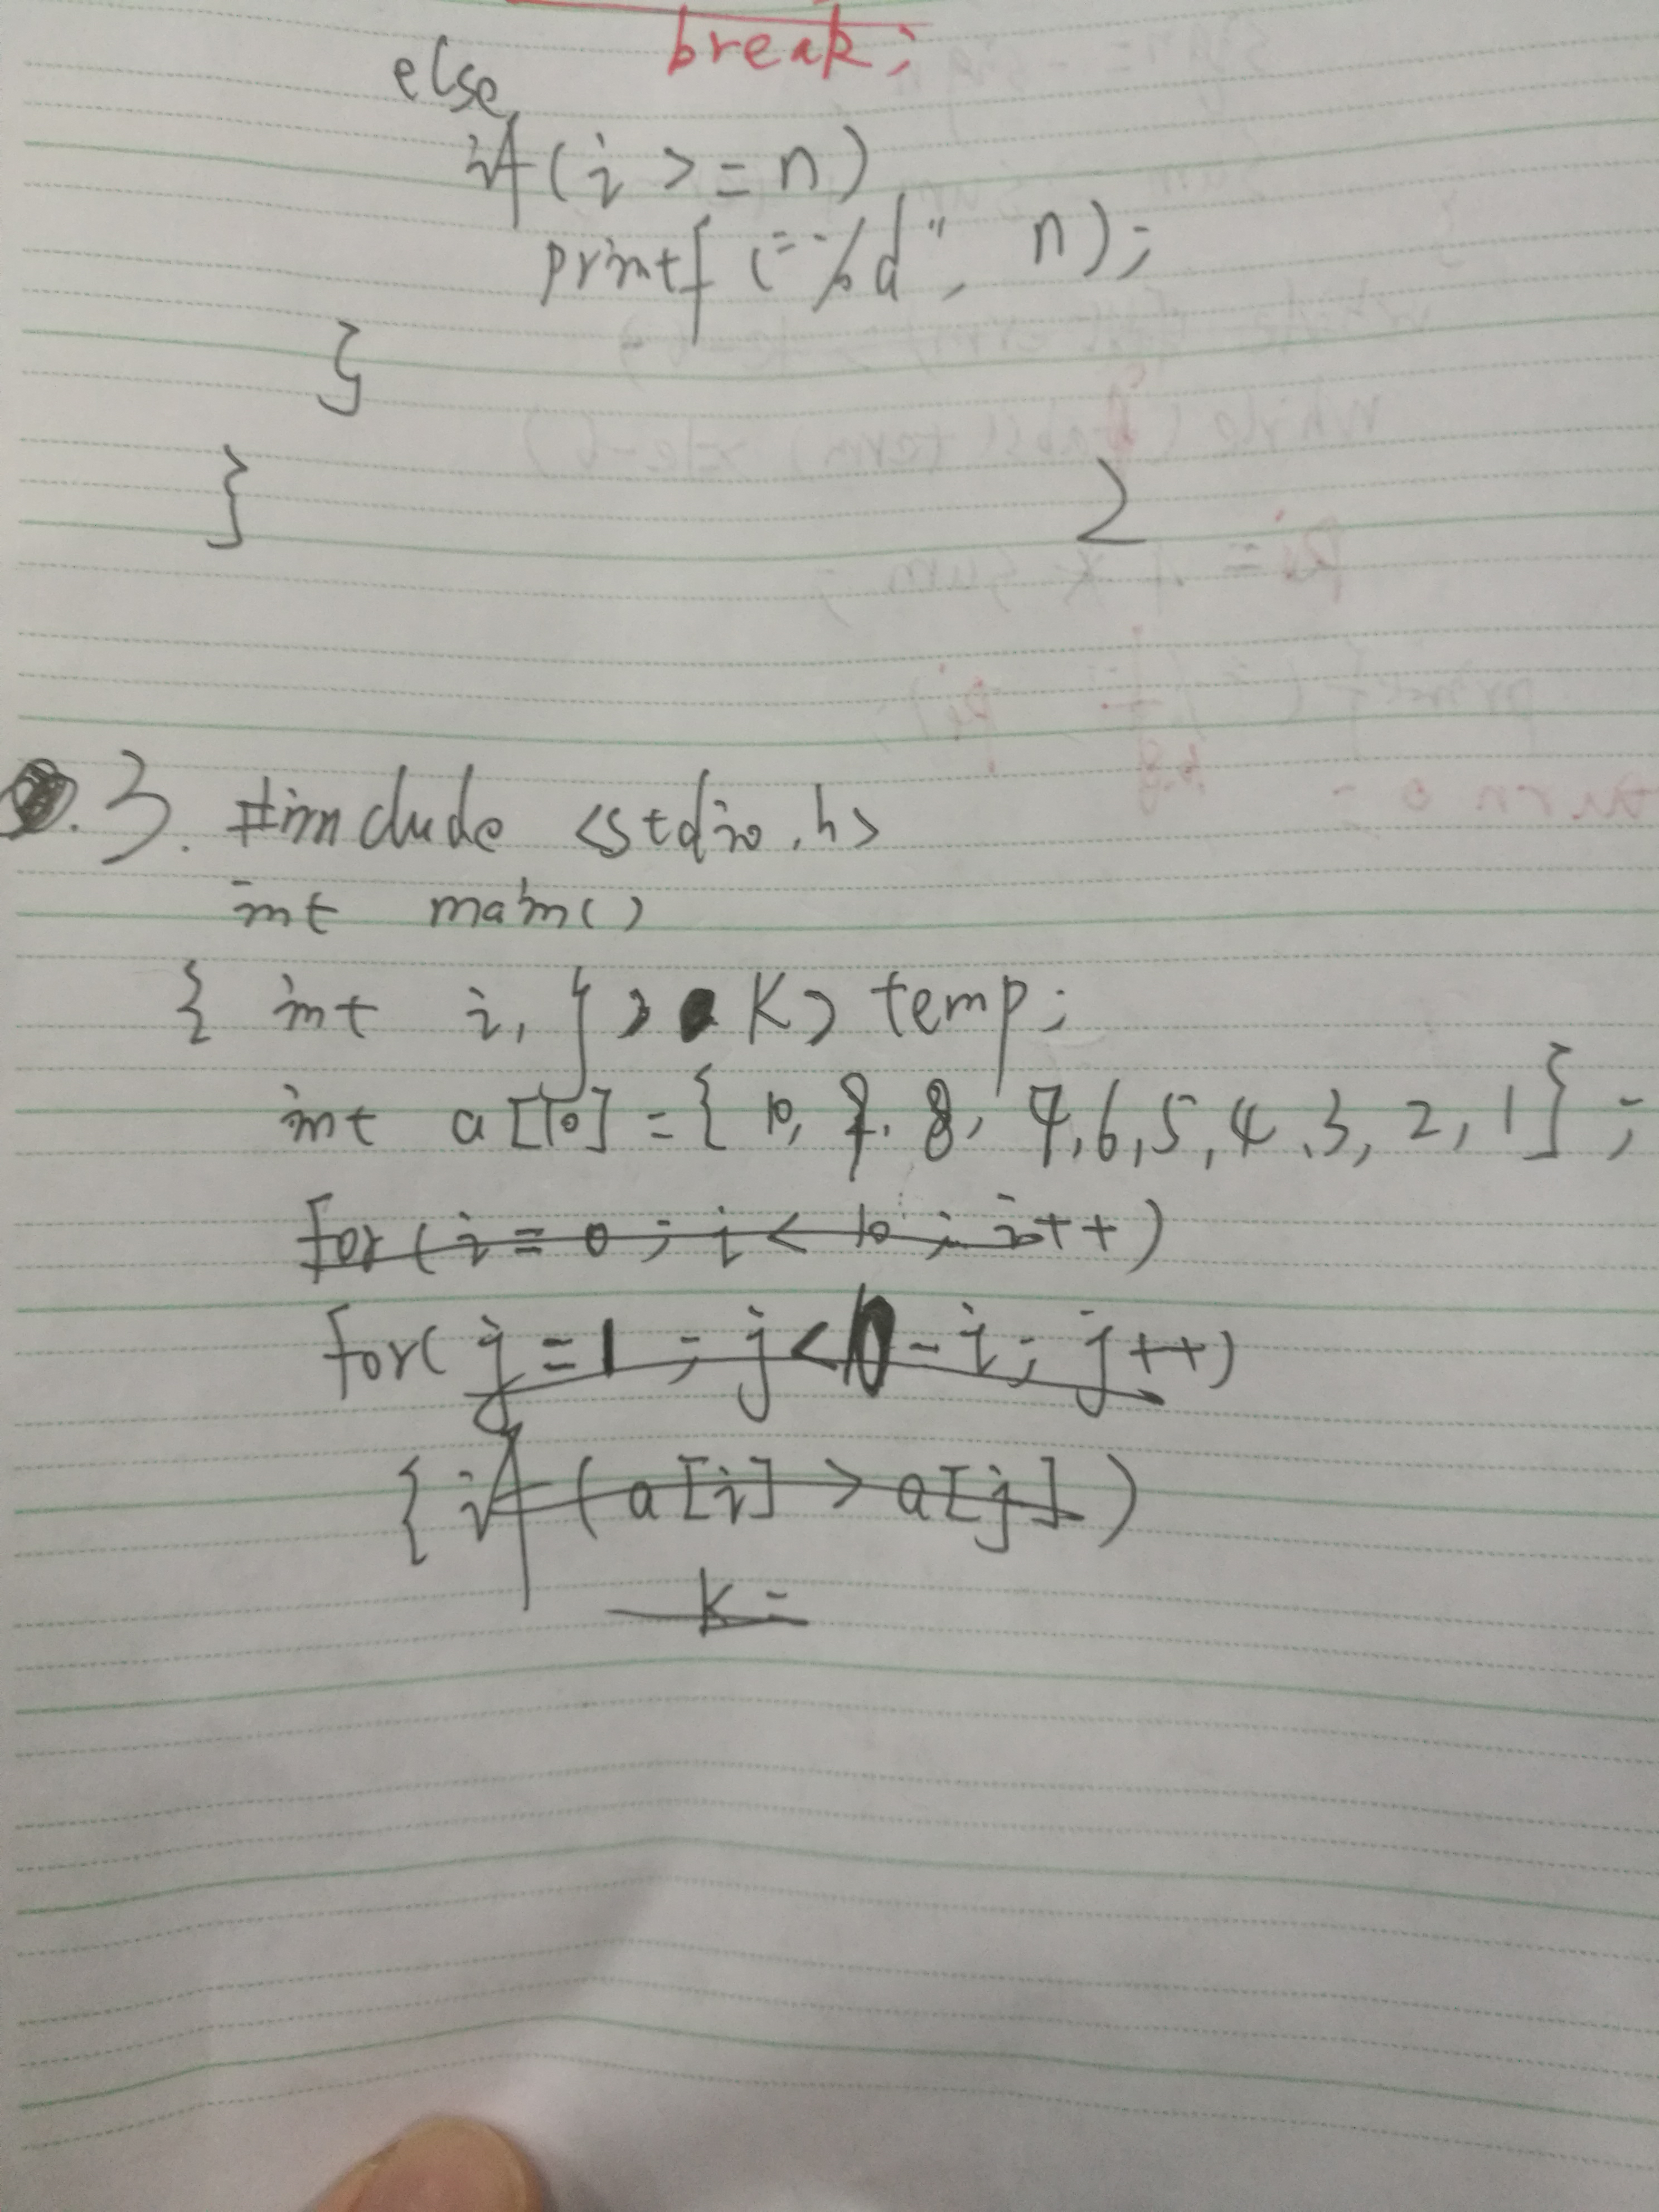 break;
else
if (i >= n)
printf ("%d", n);
}
}
2
3. #include <stdio.h>
int main()
{ int i, j, k, temp;
int a[10] = { 10, 9, 8, 7, 6, 5, 4, 3, 2, 1 } ;
for (i = 0 ; i < 10 ; i++)
for( j = 1 ; j < 10 - i ; j++)
{ if ( a[i] > a[j] )
k =